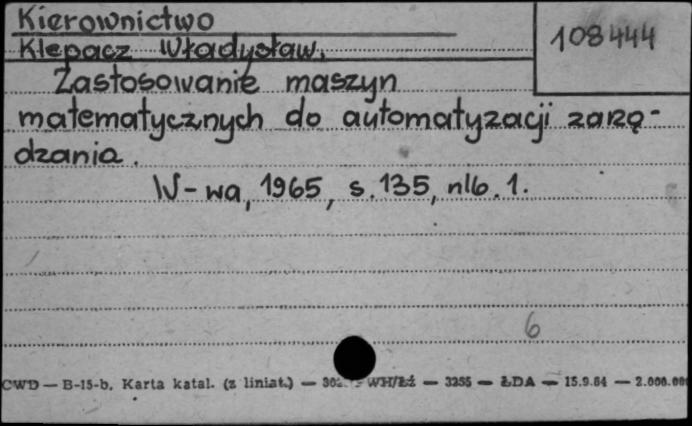 Kierownictwo
108444
Klepacz Władysław.
Zastosowanie maszyn
matematycznych do automatyzacji zarzą-
dzania.
W-wa, 1965, s. 135, nlb. 1.
6
CWD — B-15-b. Karta katal. (z liniat.) — WH/Łź — 3255 — ŁDA — 15.9.64 — 2.000.000